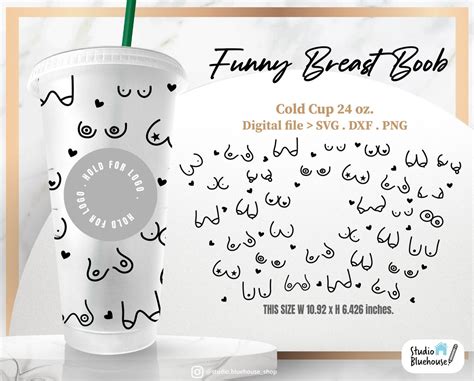 Funny Breast Boob
Cold Cup 24 oz.
Digital file > SVG . DXF . PNG
HOLD FOR LOGO . HOLD FOR LOGO .
THIS SIZE W 10.92 x H 6.426 inches.
@studio.bluehouse_shop
Studio
Bluehouse!